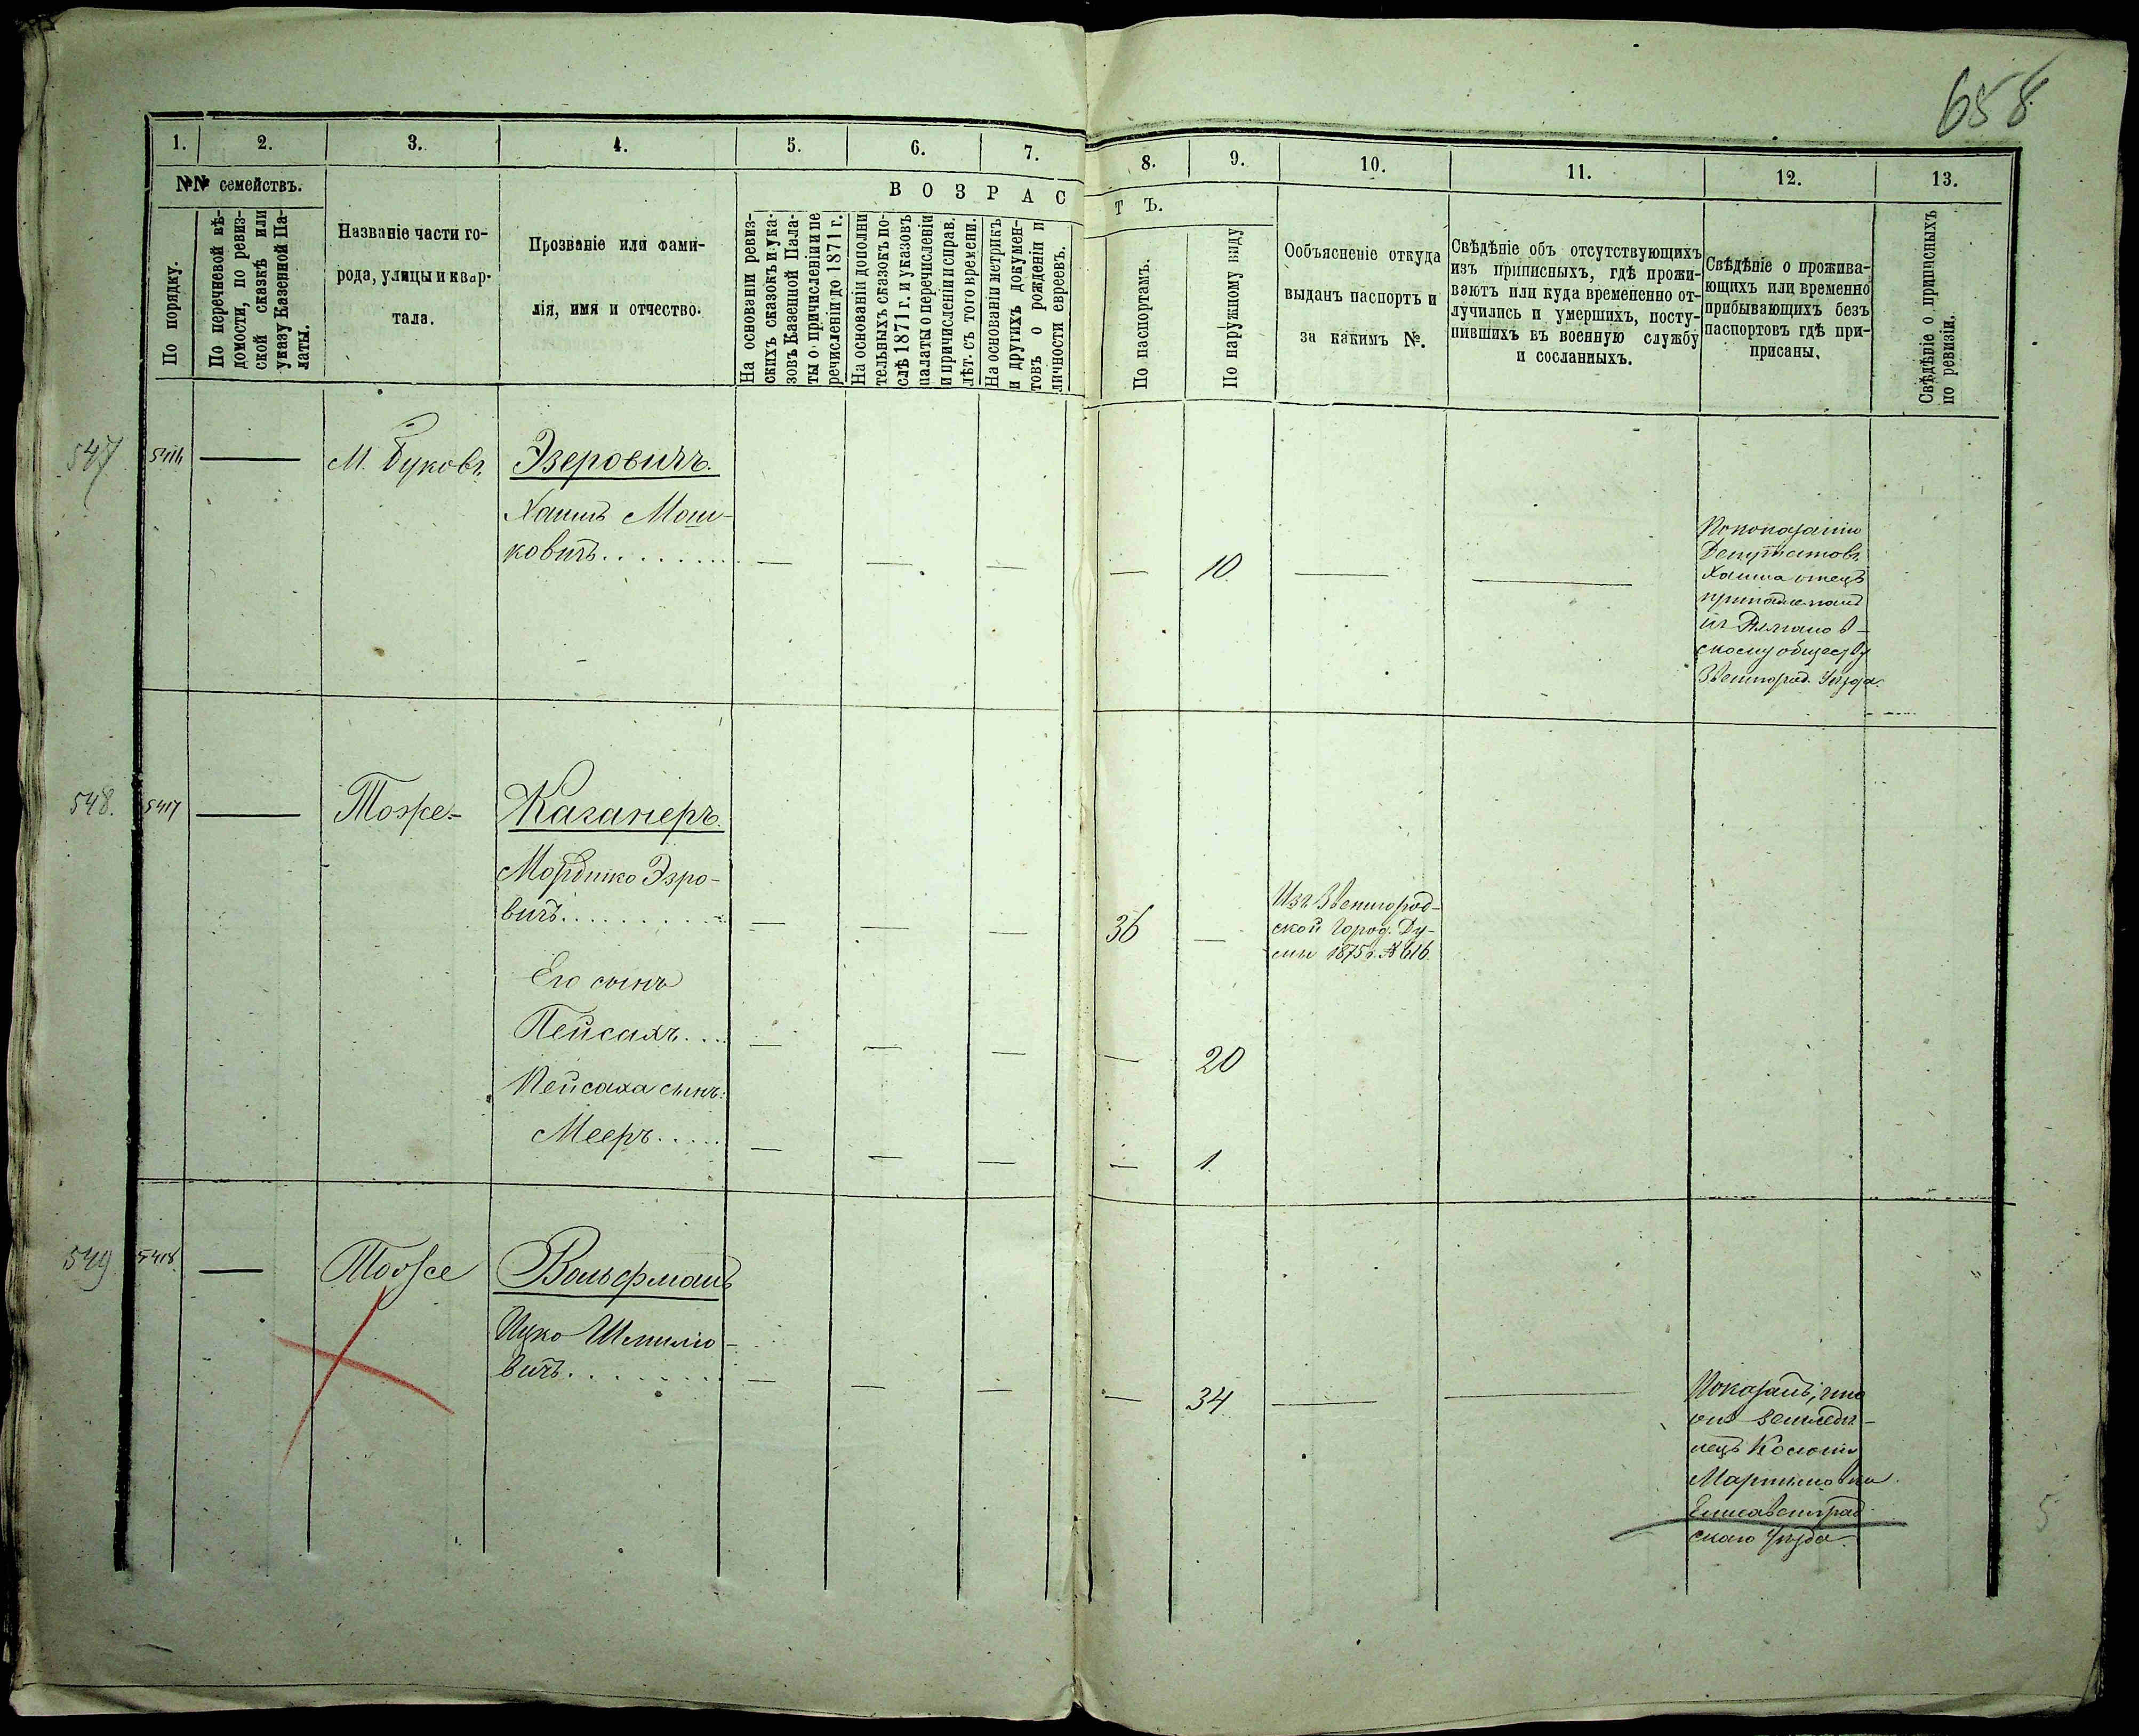 658
1. 2. 3. 4. 5. 6. 7. 8. 9. 10. 11. 12. 13.
№№ семействъ.
По порядку.
По перечневой вѣ-
домости, по ревиз-
ской сказкѣ или
указу Казенной Па-
латы.
Названіе части го-
рода, улицы и квар-
тала.
Прозваніе или фами-
лія, имя и отчество.
ВОЗРАСТЪ.
На основаніи ревиз-
скихъ сказокъ и ука-
зовъ Казенной Пала-
ты о причисленіи и пе
речисленіи до 1871 г.
На основаніи дополни
тельныхъ сказокъ по-
слѣ 1871 г. и указовъ
палаты о перечисленіи
и причисленіи и справ.
лѣт. съ того времени.
На основаніи метрикъ
и другихъ докумен-
товъ о рожденіи и
личности евреевъ.
По паспортамъ.
По наружному виду
Ообъясненіе откуда
выданъ паспортъ и
за какимъ №.
Свѣдѣніе объ отсутствующихъ
изъ приписныхъ, гдѣ прожи-
ваютъ или куда временно от-
лучились и умершихъ, посту-
пившихъ въ военную службу
и сосланныхъ.
Свѣдѣніе о прожива-
ющихъ или временно
прибывающихъ безъ
паспортовъ гдѣ при-
присаны.
Свѣдѣніе о приписныхъ
по ревизіи.
547 5416 — М. Буковъ. Эзеровичъ.
Хаимъ Мош-
ковичъ. — — — — 10. — —
По показанію
Депутатовъ
Хаима отецъ
скому обществу
Звенигород. Уѣзда.
548. 5417 — Тоже- Каганеръ.
Мордтко Эзро-
вичъ. — — — 36 —
Изъ Звенигород-
ской Город. Ду-
мы 1875 г. № 616.
Его сынъ
Пейсахъ. — — — — 20
Пейсаха сынъ.
Мееръ. — — — — 1.
549 5418. — Тоже Вольфманъ
Ицко Шмилю-
вичъ. — — — — 34 — —
Показалъ, что
онъ земледѣ-
лецъ Колоніи
Елисаветград
скаго Уѣзда.
5